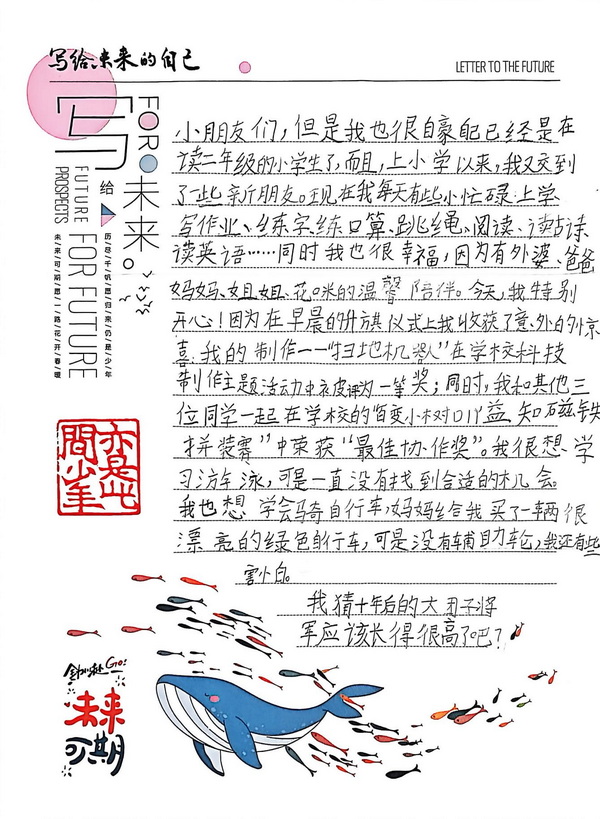 写给未来的自己
LETTER TO THE FUTURE
FORO
写
给
未来。
FUTURE
PROSPECTS
FOR FUTURE
历尽千帆愿你来仍是少年
未来可期愿一路花开春暖
小朋友们，但是我也很自豪自己已经是在
读二年级的小学生了，而且，上小学以来，我又交到
了一些新朋友。现在我每天有些小忙碌：上学、
写作业、练字、练口算、跳绳、阅读、读古诗、
读英语……同时我也很幸福，因为有外婆、爸爸
妈妈、姐姐、花口米的温馨陪伴。今天，我特别
开心！因为在早晨的升旗仪式上我收获了意外的惊
喜：我的制作一一“扫地机器人”在学校科技
制作主题活动中被评为一等奖；同时，我和其他三
位同学一起在学校的“百变小树DIY益知磁铁
拼装赛”中荣获“最佳协作奖”。我很想学
习游泳，可是一直没有找到合适的机会。
我也想学会骑自行车，妈妈给我买了一辆很
漂亮的绿色自行车，可是没有辅助轮，我还有些
害怕。
我猜十年后的大团子将
军应该长得很高了吧？
亦是此
間少年
Go:
未来
可期